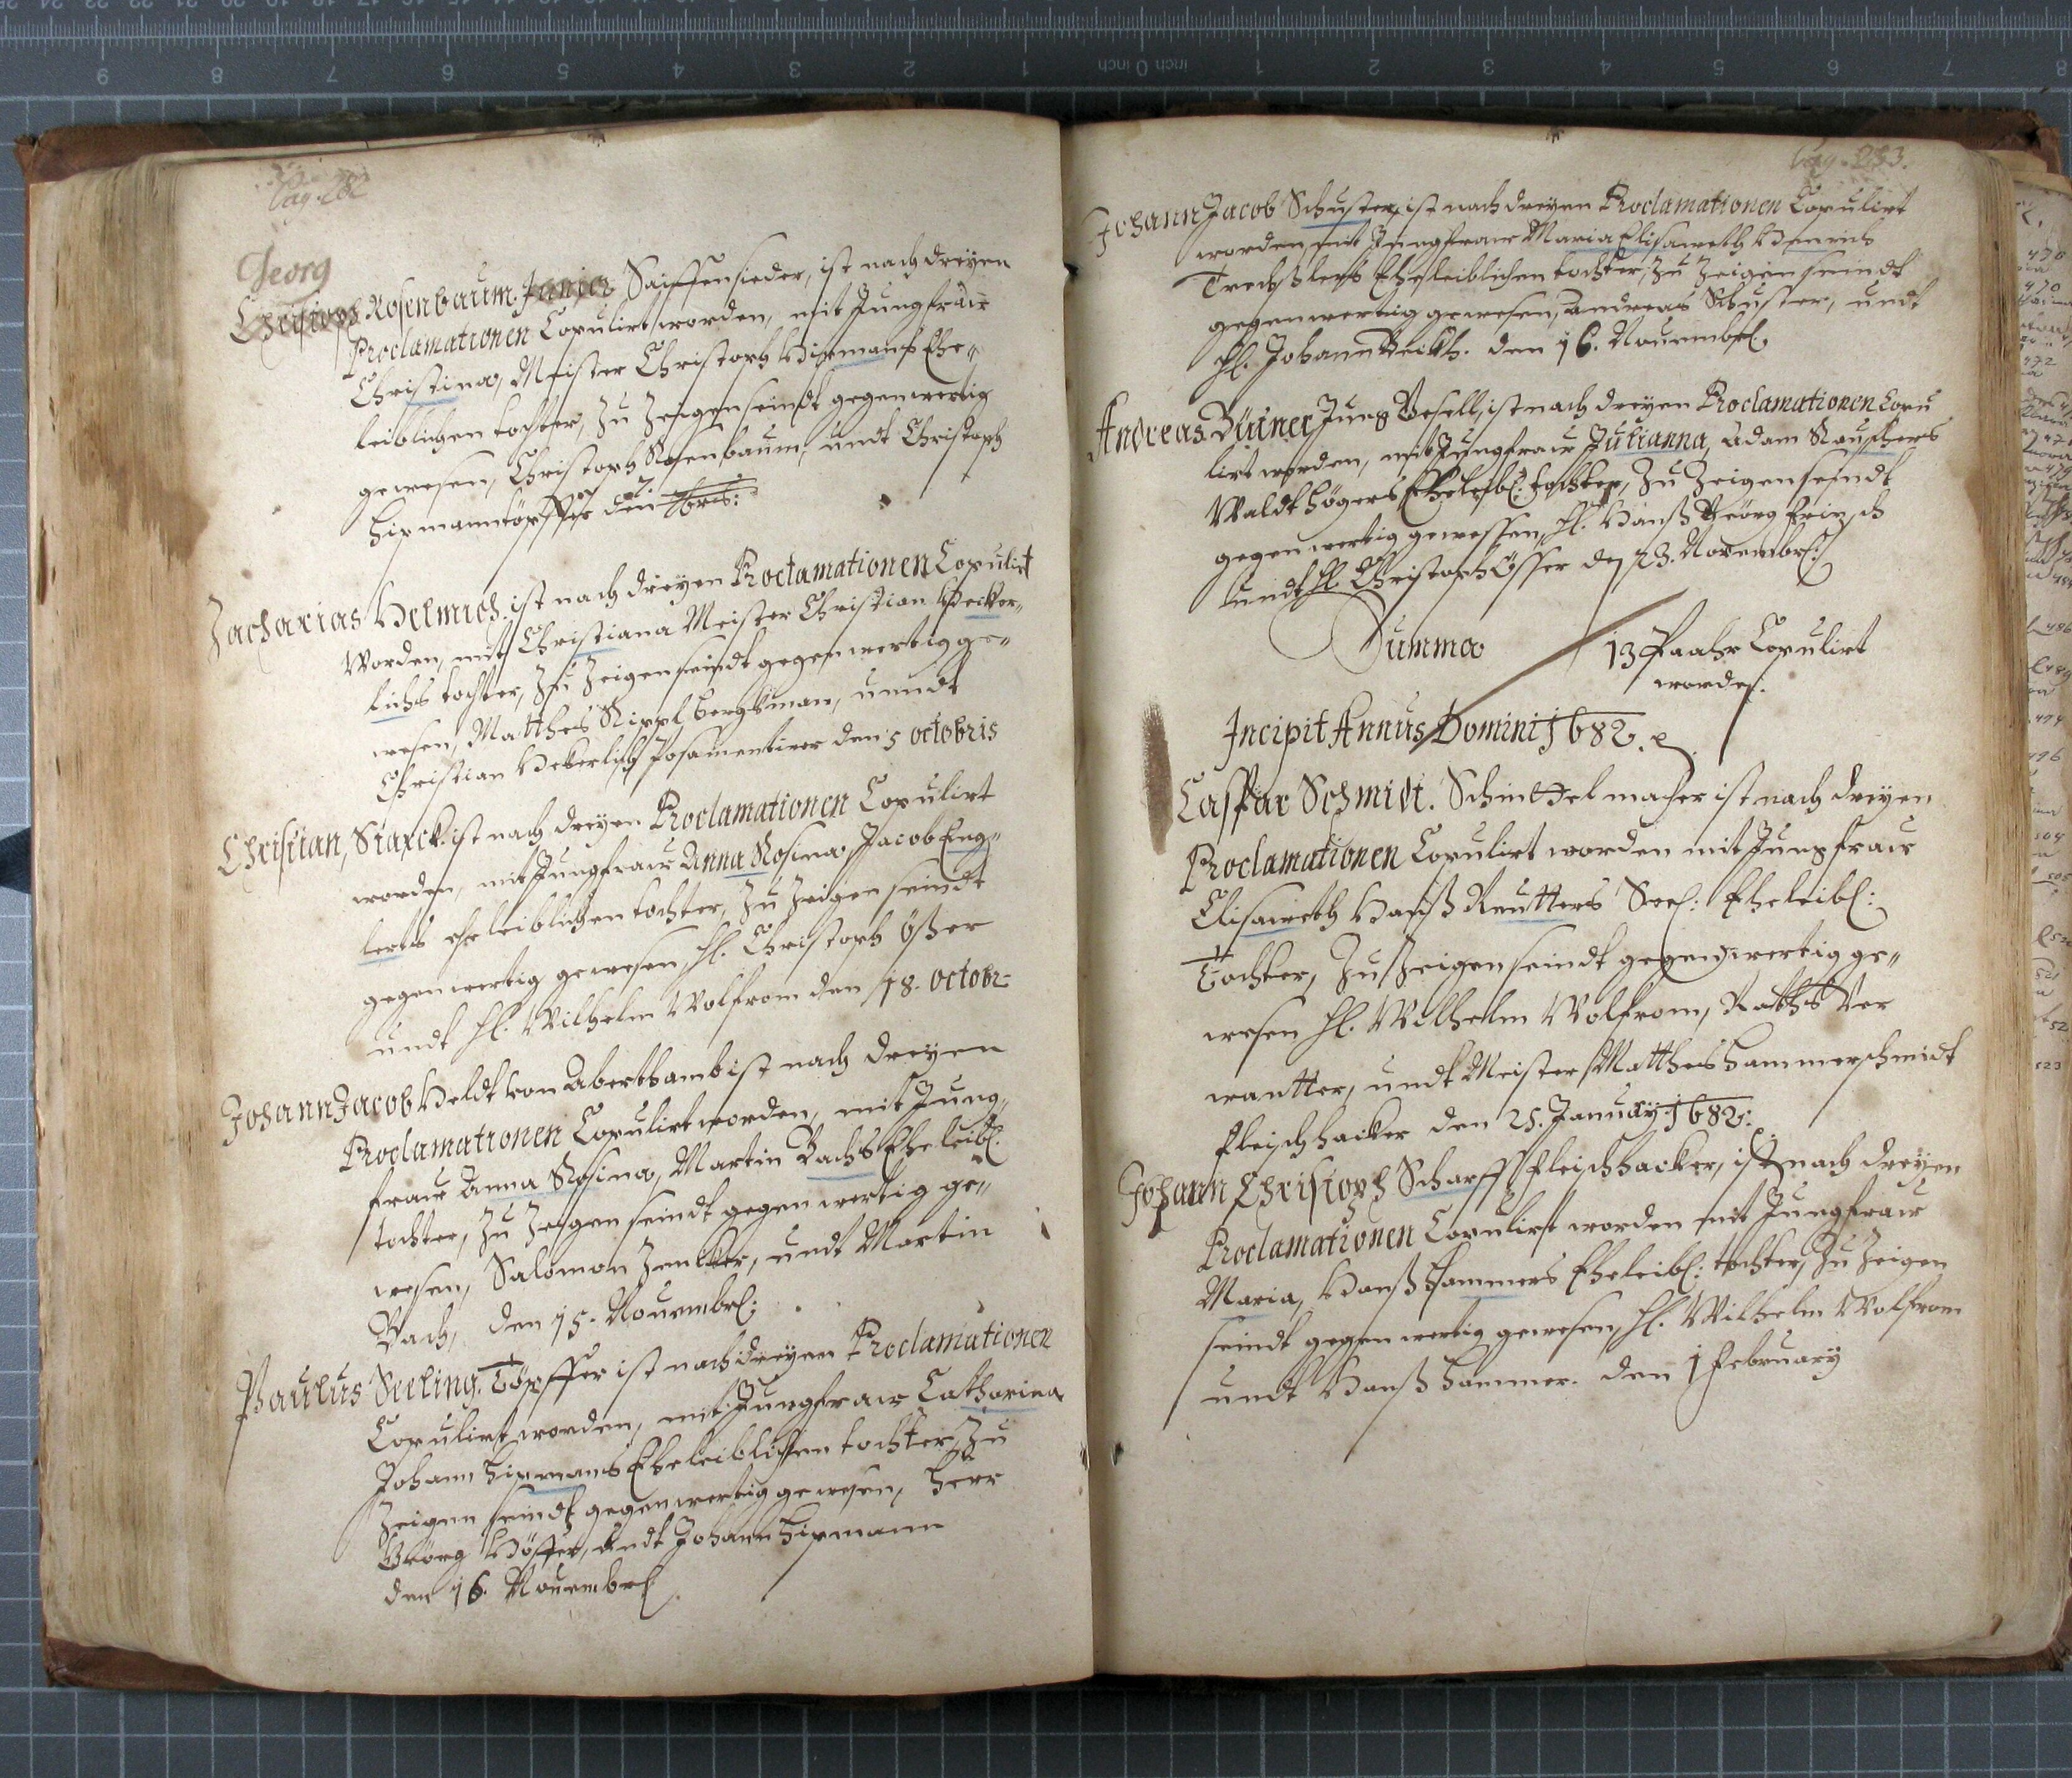 Pag. 282
Georg
Christoph Rosenbaum Junior Saiffensieder, ist nach dreyen
Proclamationen Copulirt worden, mit Jungfraw
Christina, Meister Christoph Hipmans Ehe„
leiblichen tochter, Zu Zeigen seindt gegenwertig
gewesen, Christoph Rosenbaum, undt Christoph
Hipmann töpffer den 7bris:
Zacharias Helmich ist nach dreyen Proclamationen Copulirt
Worden, mit Christiana Meister Christian
lichs tochter, Zu Zeigen seindt gegenwertig ge„
wesen, Matthes Rippl bergkman, unndt
Christian Heberlich Posamentirer den 5 octobris
Christian, Starck ist nach dreyen Proclamationen Copulirt
worden, mit Jungfraw Anna Rosina, Jacob Eng„
lerts eheleiblichen tochter, Zu Zeigen seindt
gegenwertig gewesen, H. Christoph Ößer
undt H. Wilhelm Wolfrom den 18. octobr:
Johann Jacob Heldt von Abertham ist nach dreyen
Proclamationen Copulirt worden, mit Jung
fraw Anna Rosina, Martin Bachs Eheleibl:
tochter, Zu Zeigen seindt gegenwertig ge„
wesen, Salomon Zencker, undt Martin
Bach, den 15. Nouembr:
Paulus Seeling. Töpffer ist nach dreyen Proclamationen
Copulirt worden, mit Jungfraw Catharina
Johann Hipmans Eheleiblichen tochter, Zu
Zeigen seindt gegenwertig gewesen, Herr
Geörg Höffer, undt Johann Hipmann
den 16. Nouembr:
Pag. 283.
Johann Jacob Schuster, ist nach dreyen Proclamationen Copulirt
worden, mit Jungfraw Maria Elisaweth Henrich
Trechßlers Eheleiblichen tochter, Zu Zeigen seindt
gegenwertig gewesen, Andreas Schuster, undt
H. Johann den 16. Nouembr:
Andreas Jung Gesell, ist nach dreyen Proclamationen Copu
lirt worden, mit Jungfraw Julianna, Adam Rauschers
Waldthögers Eheleibl: tochter, Zu Zeigen seindt
gegenwertig gewessen, H. Hanß Geörg
undt H. Christoph Össer den 23. Nouembr:
Summa 13 Paahr Copulirt
worden.
Incipit Annus Domini 1682.
Caspar Schmidt. Schindel macher ist nach dreyen
Proclamationen Copulirt worden mit Jungfraw
Elisaweth Hanß Reutters Seel: Eheleibl:
Tochter, Zu Zeigen seindt gegenwertig ge„
wesen H. Wilhelm Wolfrom, Raths Ver
wantter, undt Meister Matthes Hammerschmidt
fleischhacker den 25. January 1682:
Johann Christoph Scharff fleischhacker, ist nach dreyen
Proclamationen Copulirt worden mit Jungfraw
Maria, Hanß Hammers Eheleibl: tochter, Zu Zeigen
seindt gegenwertig gewesen, H. Wilhelm Wolfrom
undt Hanß Hammer. den 1 february